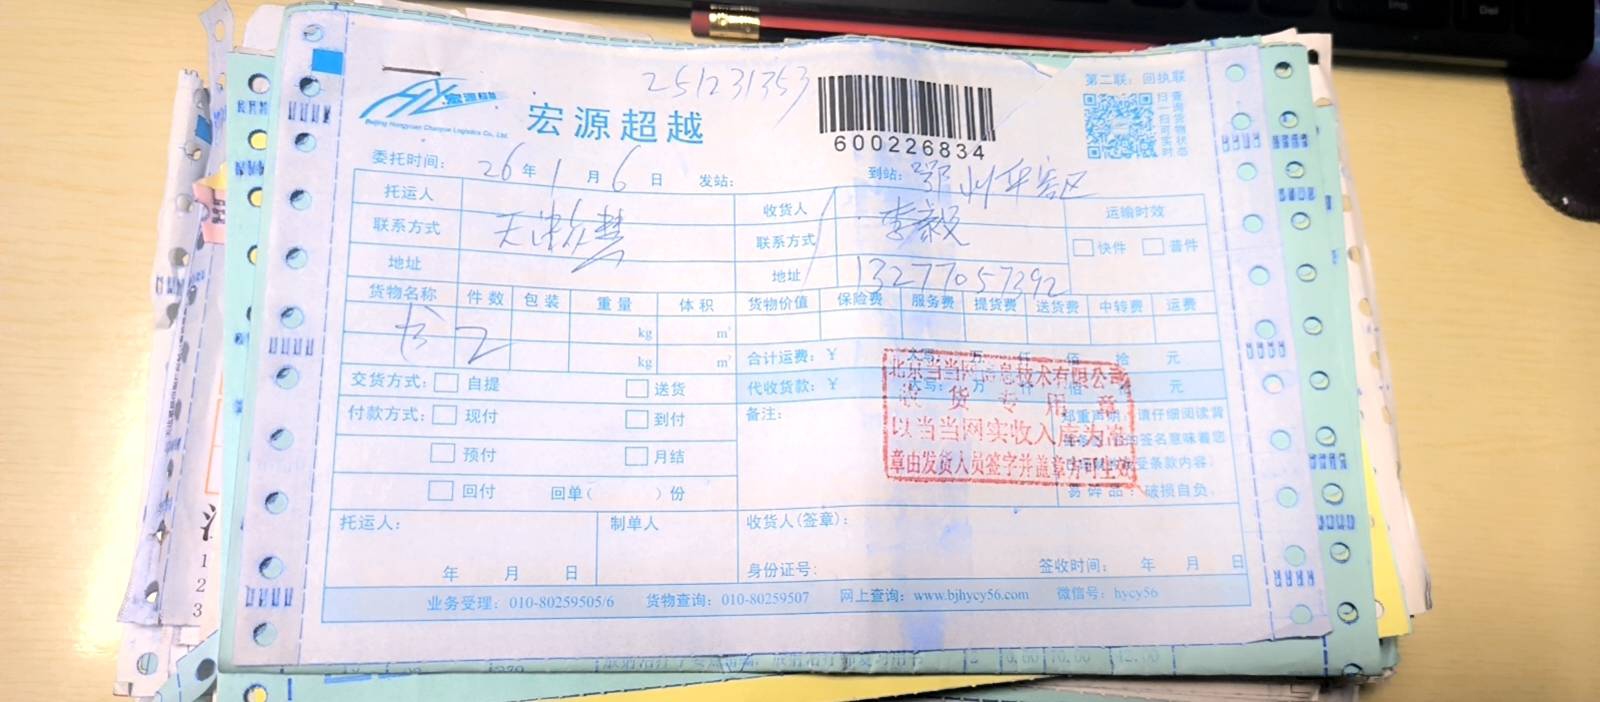 251231353
宏源超越
Beijing Hongyuan Chaoyue Logistics Co., Ltd.
600226834
第二联：回执联
扫一扫可实时
查询货物状态
委托时间：26年1月6日 发站： 到站：鄂州华容区
托运人 收货人 运输时效
联系方式 天津众慧 联系方式 李毅
快件 普件
地址 地址 13277057392
货物名称 件数 包装 重量 体积 货物价值 保险费 服务费 提货费 送货费 中转费 运费
书 2 kg m³
kg m³
合计运费：¥ 大写： 万 仟 佰 拾 元
交货方式： 自提 送货
代收货款：¥ 大写： 万 佰 元
付款方式： 现付 到付
备注：
郑重声明：请仔细阅读背
的签名意味着您
受条款内容；
易碎品：破损自负。
北京当当网信息技术有限公司
收货专用章
以当当网实收入库为准
章由发货人员签字并盖章方可生效
预付 月结
回付 回单( )份
托运人： 制单人 收货人(签章)：
年 月 日 身份证号： 签收时间： 年 月 日
业务受理：010-80259505/6 货物查询：010-80259507 网上查询：www.bjhycy56.com 微信号：hycy56